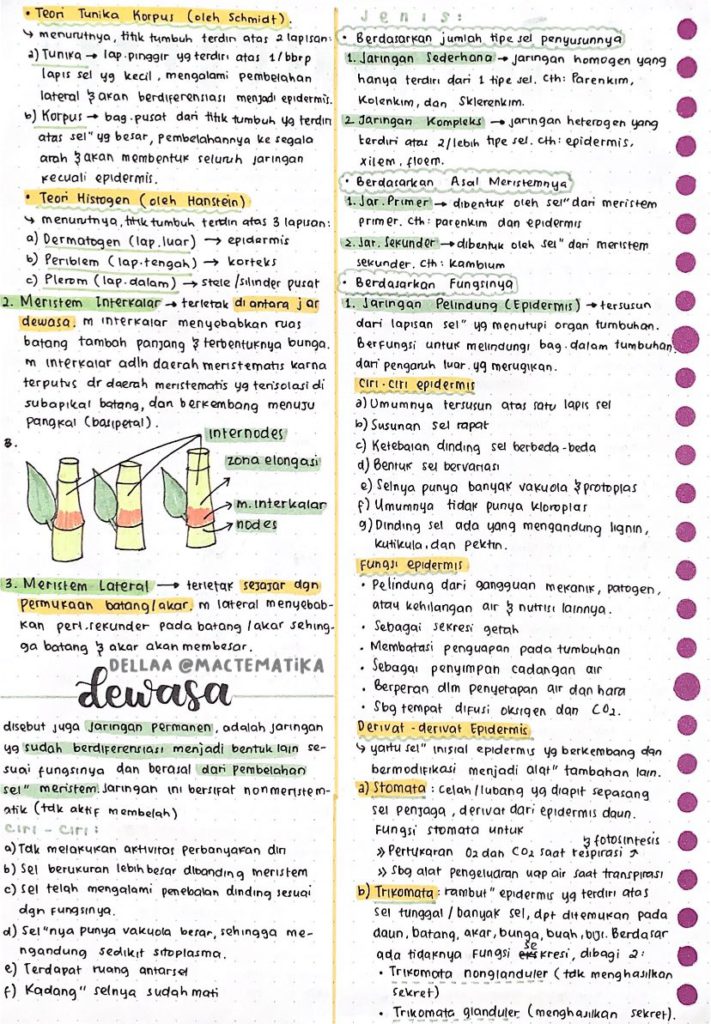 • Teori Tunika Korpus (oleh Schmidt).
↳ menurutnya, titik tumbuh terdiri atas 2 lapisan:
a) Tunika → lap. pinggir yg terdiri atas 1/bbrp
lapis sel yg kecil, mengalami pembelahan
lateral & akan berdiferensiasi menjadi epidermis.
b) Korpus → bag. pusat dari titik tumbuh yg terdiri
atas sel" yg besar, pembelahannya ke segala
arah & akan membentuk seluruh jaringan
kecuali epidermis.
• Teori Histogen (oleh Hanstein)
↳ menurutnya, titik tumbuh terdiri atas 3 lapisan:
a) Dermatogen (lap. luar) → epidermis
b) Periblem (lap. tengah) → korteks
c) Plerom (lap. dalam) → stele/silinder pusat
2. Meristem Interkalar → terletak di antara jar
dewasa. m interkalar menyebabkan ruas
batang tambah panjang & terbentuknya bunga.
m interkalar adlh daerah meristematis karna
terputus dr daerah meristematis yg terisolasi di
subapikal batang, dan berkembang menuju
pangkal (basipetal).
8.
internodes
zona elongasi
m. interkalar
nodes
3. Meristem Lateral → terletak sejajar dgn
permukaan batang/akar. m lateral menyebab-
kan pert. sekunder pada batang/akar sehing-
ga batang & akar akan membesar.
DELLAA @MACTEMATIKA
dewasa
disebut juga jaringan permanen, adalah jaringan
yg sudah berdiferensiasi menjadi bentuk lain se-
suai fungsinya dan berasal dari pembelahan
sel" meristem. Jaringan ini bersifat nonmeristem-
atik (tdk aktif membelah)
ciri - ciri:
a) Tdk melakukan aktivitas perbanyakan diri
b) Sel berukuran lebih besar dibanding meristem
c) Sel telah mengalami penebalan dinding sesuai
dgn fungsinya.
d) Sel"nya punya vakuola besar, sehingga me-
ngandung sedikit sitoplasma.
e) Terdapat ruang antarsel
f) Kadang" selnya sudah mati
Jenis:
• Berdasarkan jumlah tipe sel penyusunnya
1. Jaringan Sederhana → jaringan homogen yang
hanya terdiri dari 1 tipe sel. Cth: Parenkim,
Kolenkim, dan Sklerenkim.
2. Jaringan Kompleks → jaringan heterogen yang
terdiri atas 2/lebih tipe sel. cth: epidermis,
xilem, floem.
• Berdasarkan Asal Meristemnya
1. Jar. Primer → dibentuk oleh sel" dari meristem
primer. Cth: parenkim dan epidermis
2. Jar. Sekunder → dibentuk oleh sel" dari meristem
sekunder. Cth: Kambium
• Berdasarkan Fungsinya
1. Jaringan Pelindung (Epidermis) → tersusun
dari lapisan sel" yg menutupi organ tumbuhan.
Berfungsi untuk melindungi bag. dalam tumbuhan
dari pengaruh luar yg merugikan.
Ciri-ciri epidermis
a) Umumnya tersusun atas satu lapis sel
b) Susunan sel rapat
c) Ketebalan dinding sel berbeda-beda
d) Bentuk sel bervariasi
e) Selnya punya banyak vakuola & protoplas
f) Umumnya tidak punya kloroplas
g) Dinding sel ada yang mengandung lignin,
kutikula, dan pektin.
Fungsi epidermis
• Pelindung dari gangguan mekanik, patogen,
atau kehilangan air & nutrisi lainnya.
• Sebagai sekresi getah
• Membatasi penguapan pada tumbuhan
• Sebagai penyimpan cadangan air
• Berperan dlm penyerapan air dan hara
• Sbg tempat difusi oksigen dan CO2.
Derivat-derivat Epidermis
↳ yaitu sel" inisial epidermis yg berkembang dan
bermodifikasi menjadi alat" tambahan lain.
a) Stomata: celah/lubang yg diapit sepasang
sel penjaga, derivat dari epidermis daun.
Fungsi stomata untuk
» Pertukaran O2 dan CO2 saat respirasi & fotosintesis
» Sbg alat pengeluaran uap air saat transpirasi
b) Trikomata: rambut" epidermis yg terdiri atas
sel tunggal/banyak sel, dpt ditemukan pada
daun, batang, akar, bunga, buah, biji. Berdasar
ada tidaknya fungsi sekresi, dibagi 2:
• Trikomata nonglanduler (tdk menghasilkan
sekret)
• Trikomata glanduler (menghasilkan sekret).